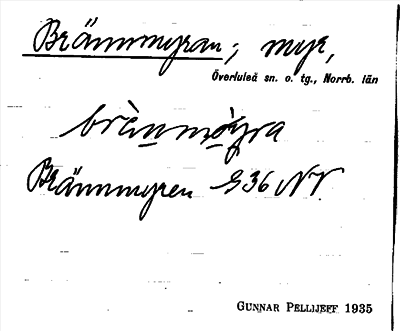 Brännmyran; myr,
Överluleå sn. o. tg., Norrb. län
brànmỳra
Brännmyren G36 NV
GUNNAR PELLIJEFF 1935